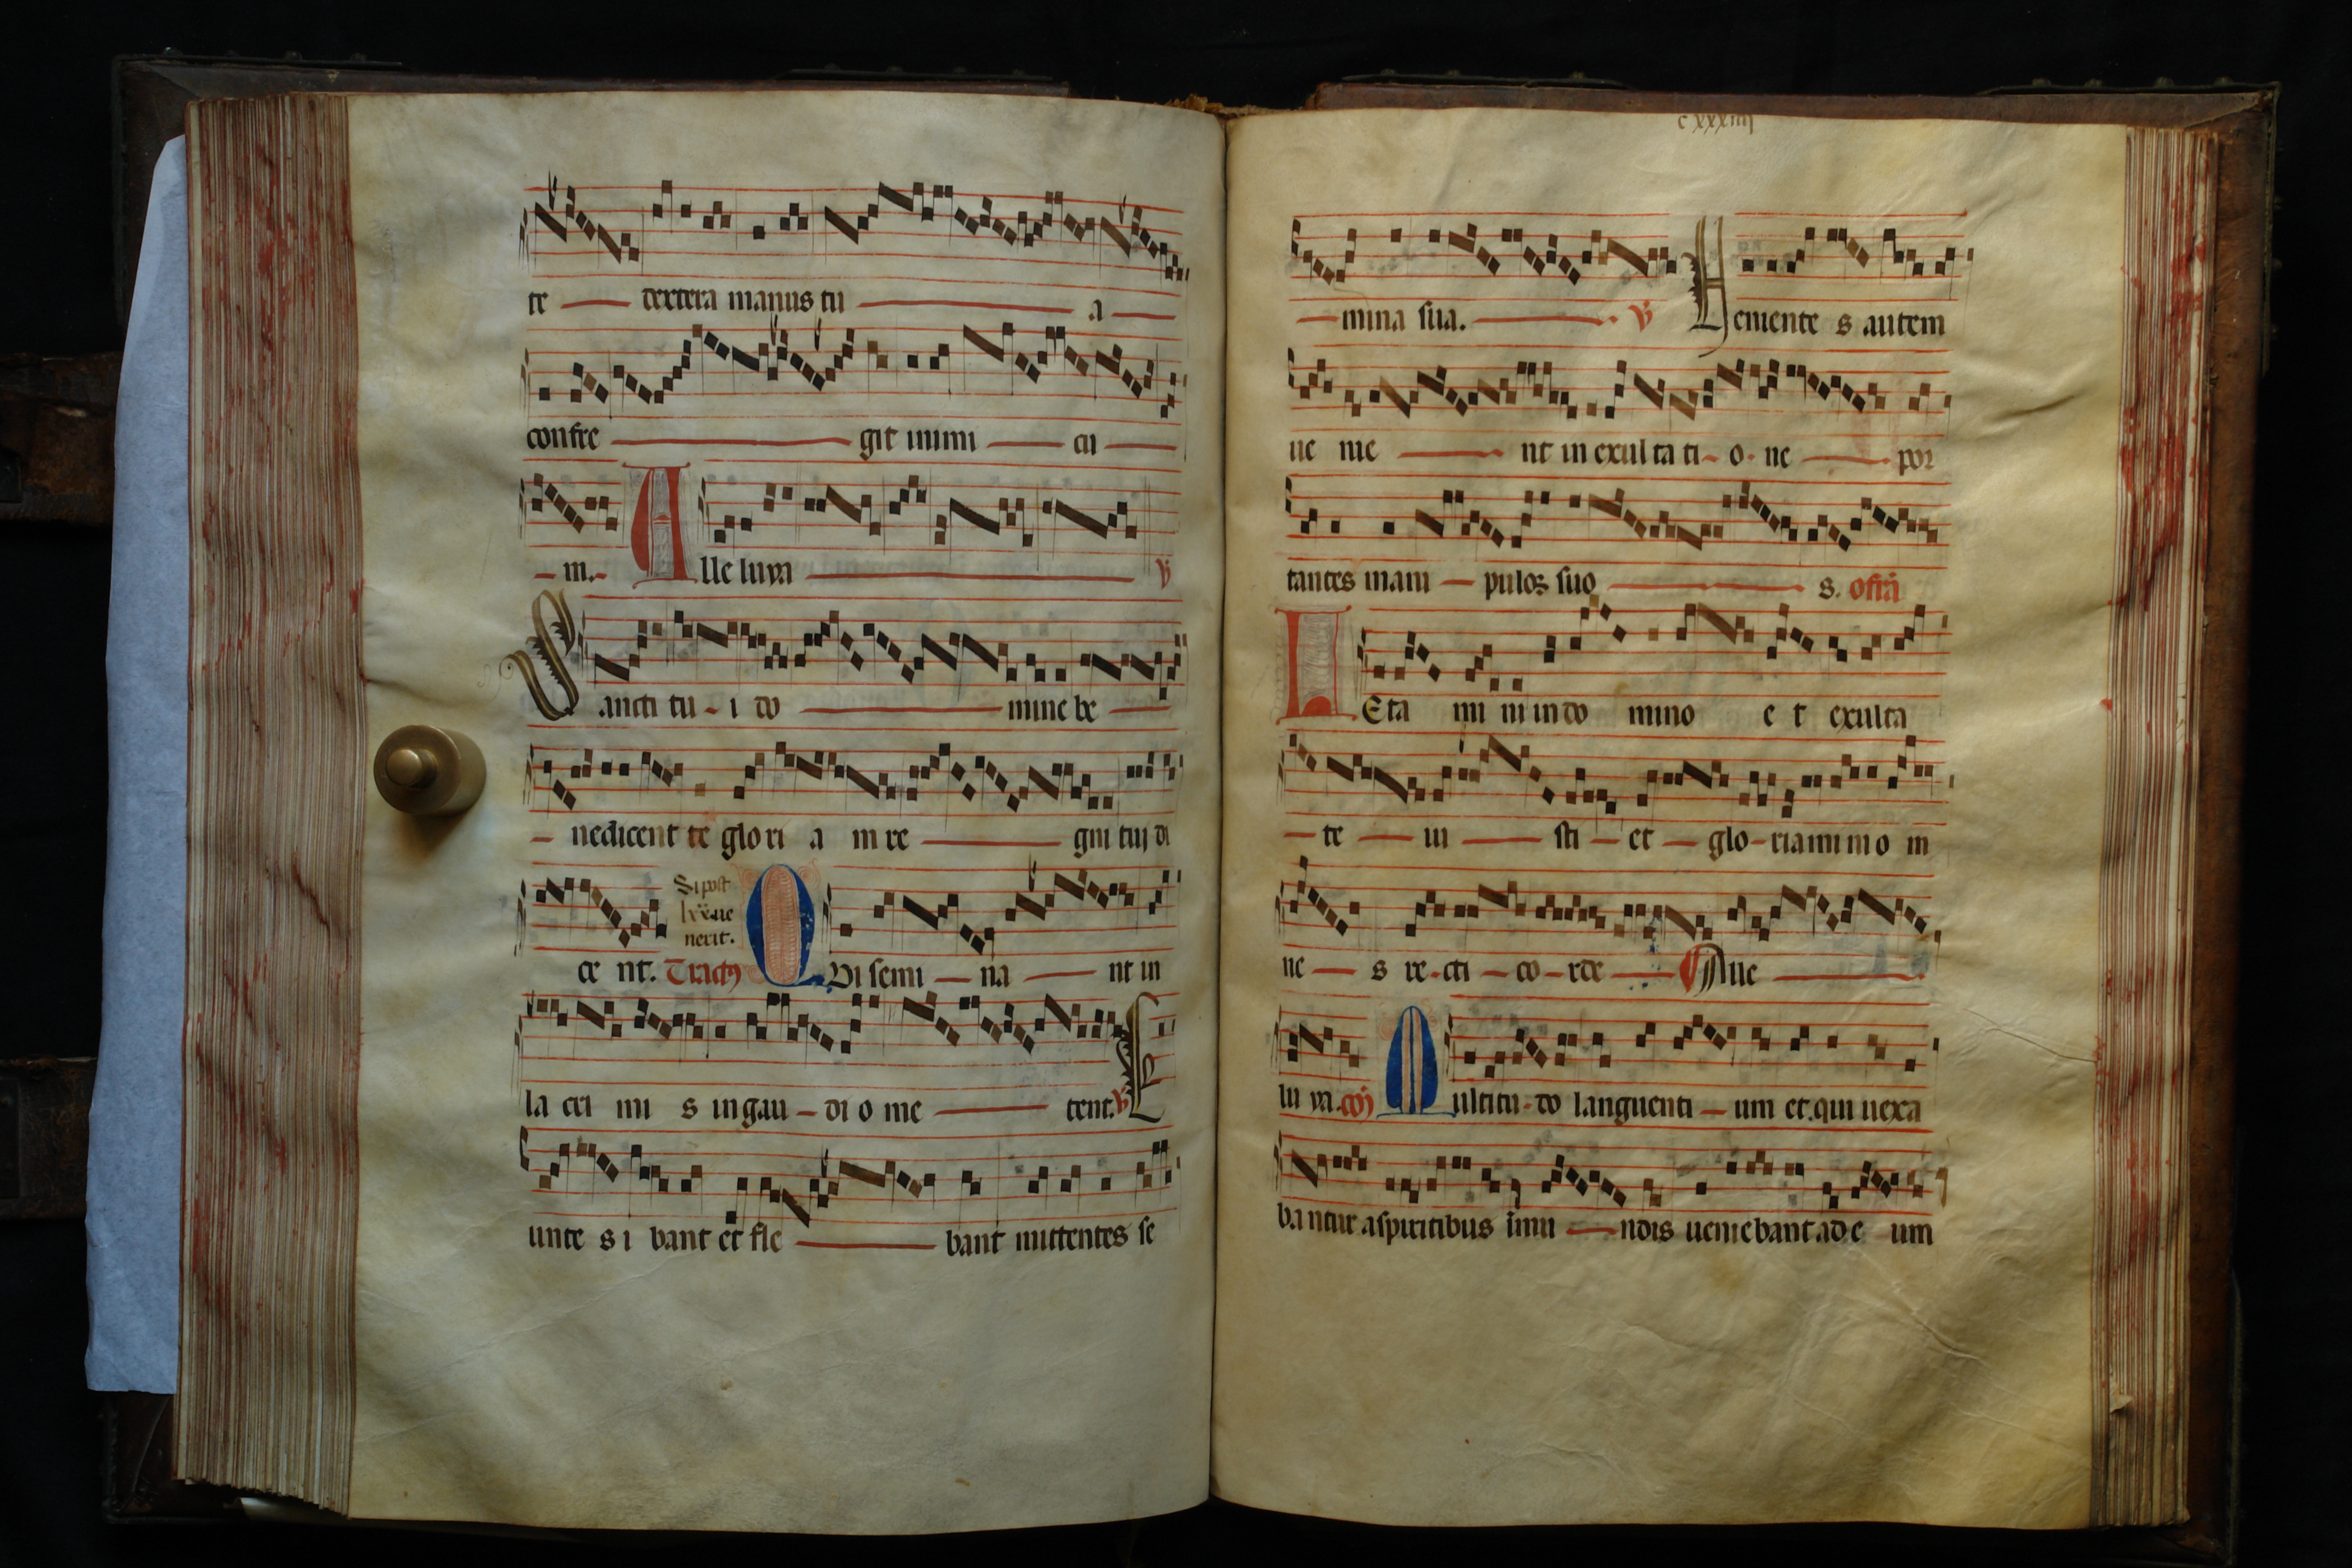 te dextera manus tu a
confre git inimi cu
m. Alleluya ℣
Sancti tu i do mine be
nedicent te glori a in re gni tuj di
Si post
lxx ue
nerit.
ce nt. Tractus QVi semi na nt in
la cri mi s in gau di o me tent. ℣ E
unte s i bant et fle bant mittentes se
cxxxiiij
mina sua. ℣ Veniente s autem
ue nie nt in exulta ti o ne por
tantes mani pulos suo s. offa
LEta mi ni in do mino e t exulta
te iu sti et glo riamini o m
ne s re cti co rde Alle
lu ya. co Multitu do languenti um et qui uexa
bantur a spiritibus inmu ndis ueniebant ad e um